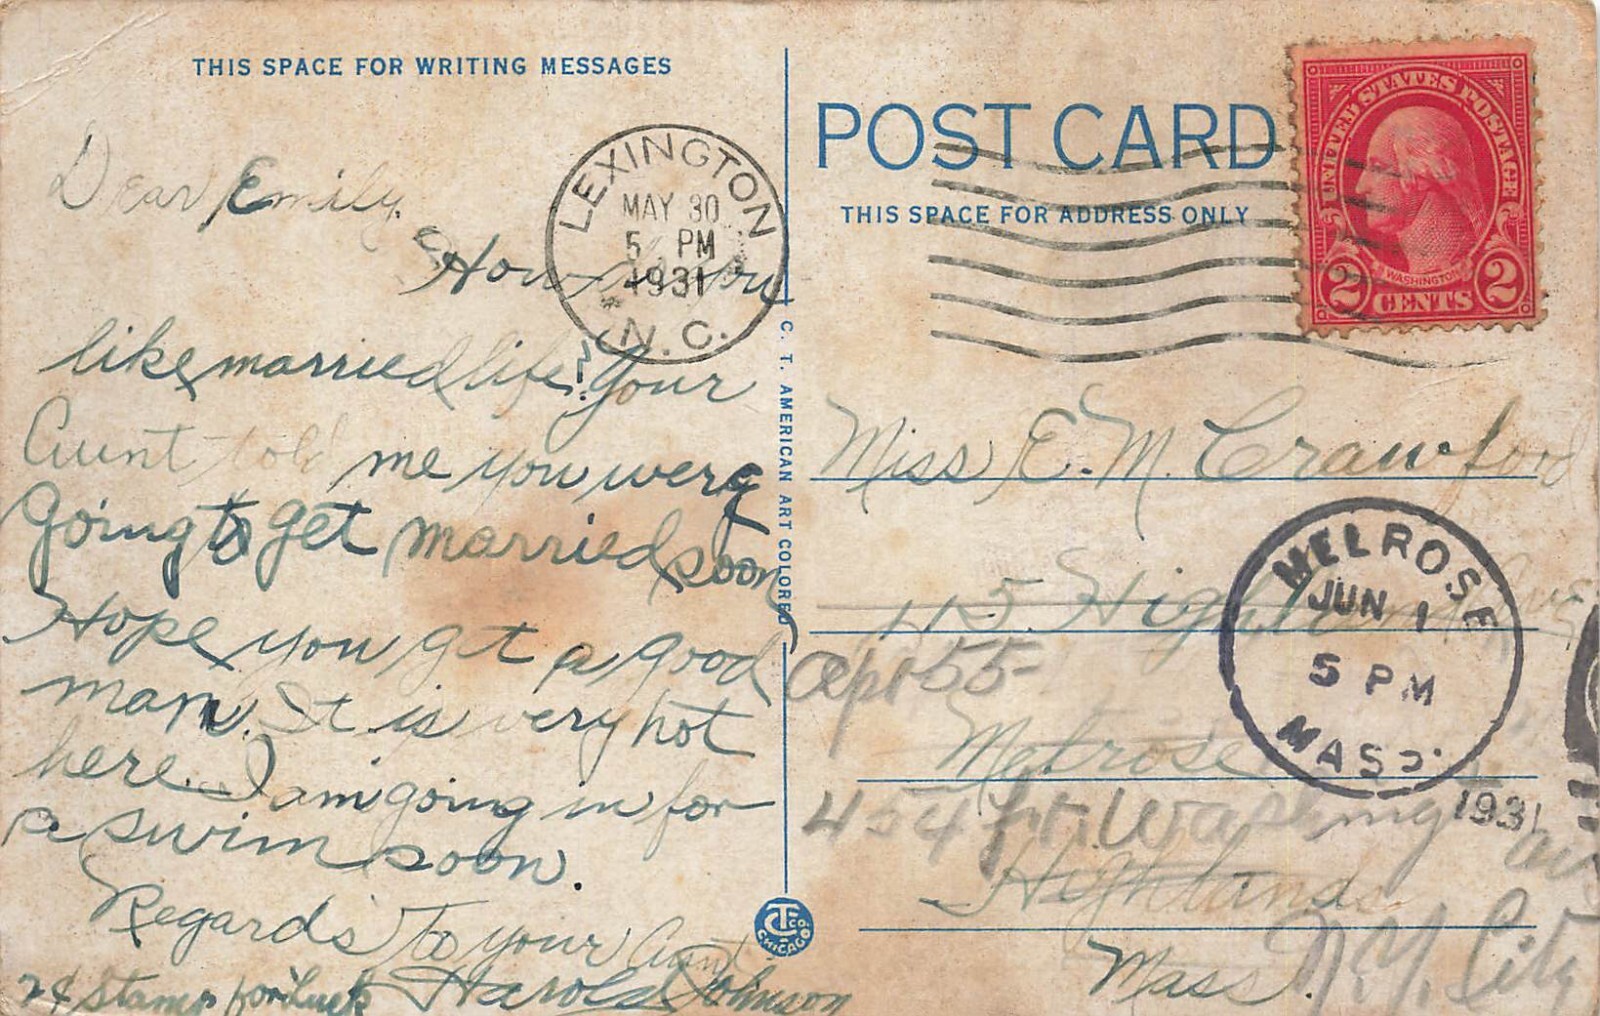 THIS SPACE FOR WRITING MESSAGES
Dear Emily.
How you
like married life? Your
Aunt told me you were
going to get married soon
Hope you get a good
man. It is very hot
here. I am going in for
a swim soon.
Regards To your Aunt
Harold Johnson
2¢ Stamp for luck
LEXINGTON
MAY 30
5 PM
1931
N.C.
C. T. AMERICAN ART COLORED
CTCO
CHICAGO
POST CARD
THIS SPACE FOR ADDRESS ONLY
UNITED STATES POSTAGE
WASHINGTON
2 CENTS 2
Miss E. M. Crawford
115 Highland Ave
Apt 55
Melrose
454 Ft. Washing
Highlands
Mass.
N.Y. City
MELROSE
JUN 1
5 PM
MASS.
1931